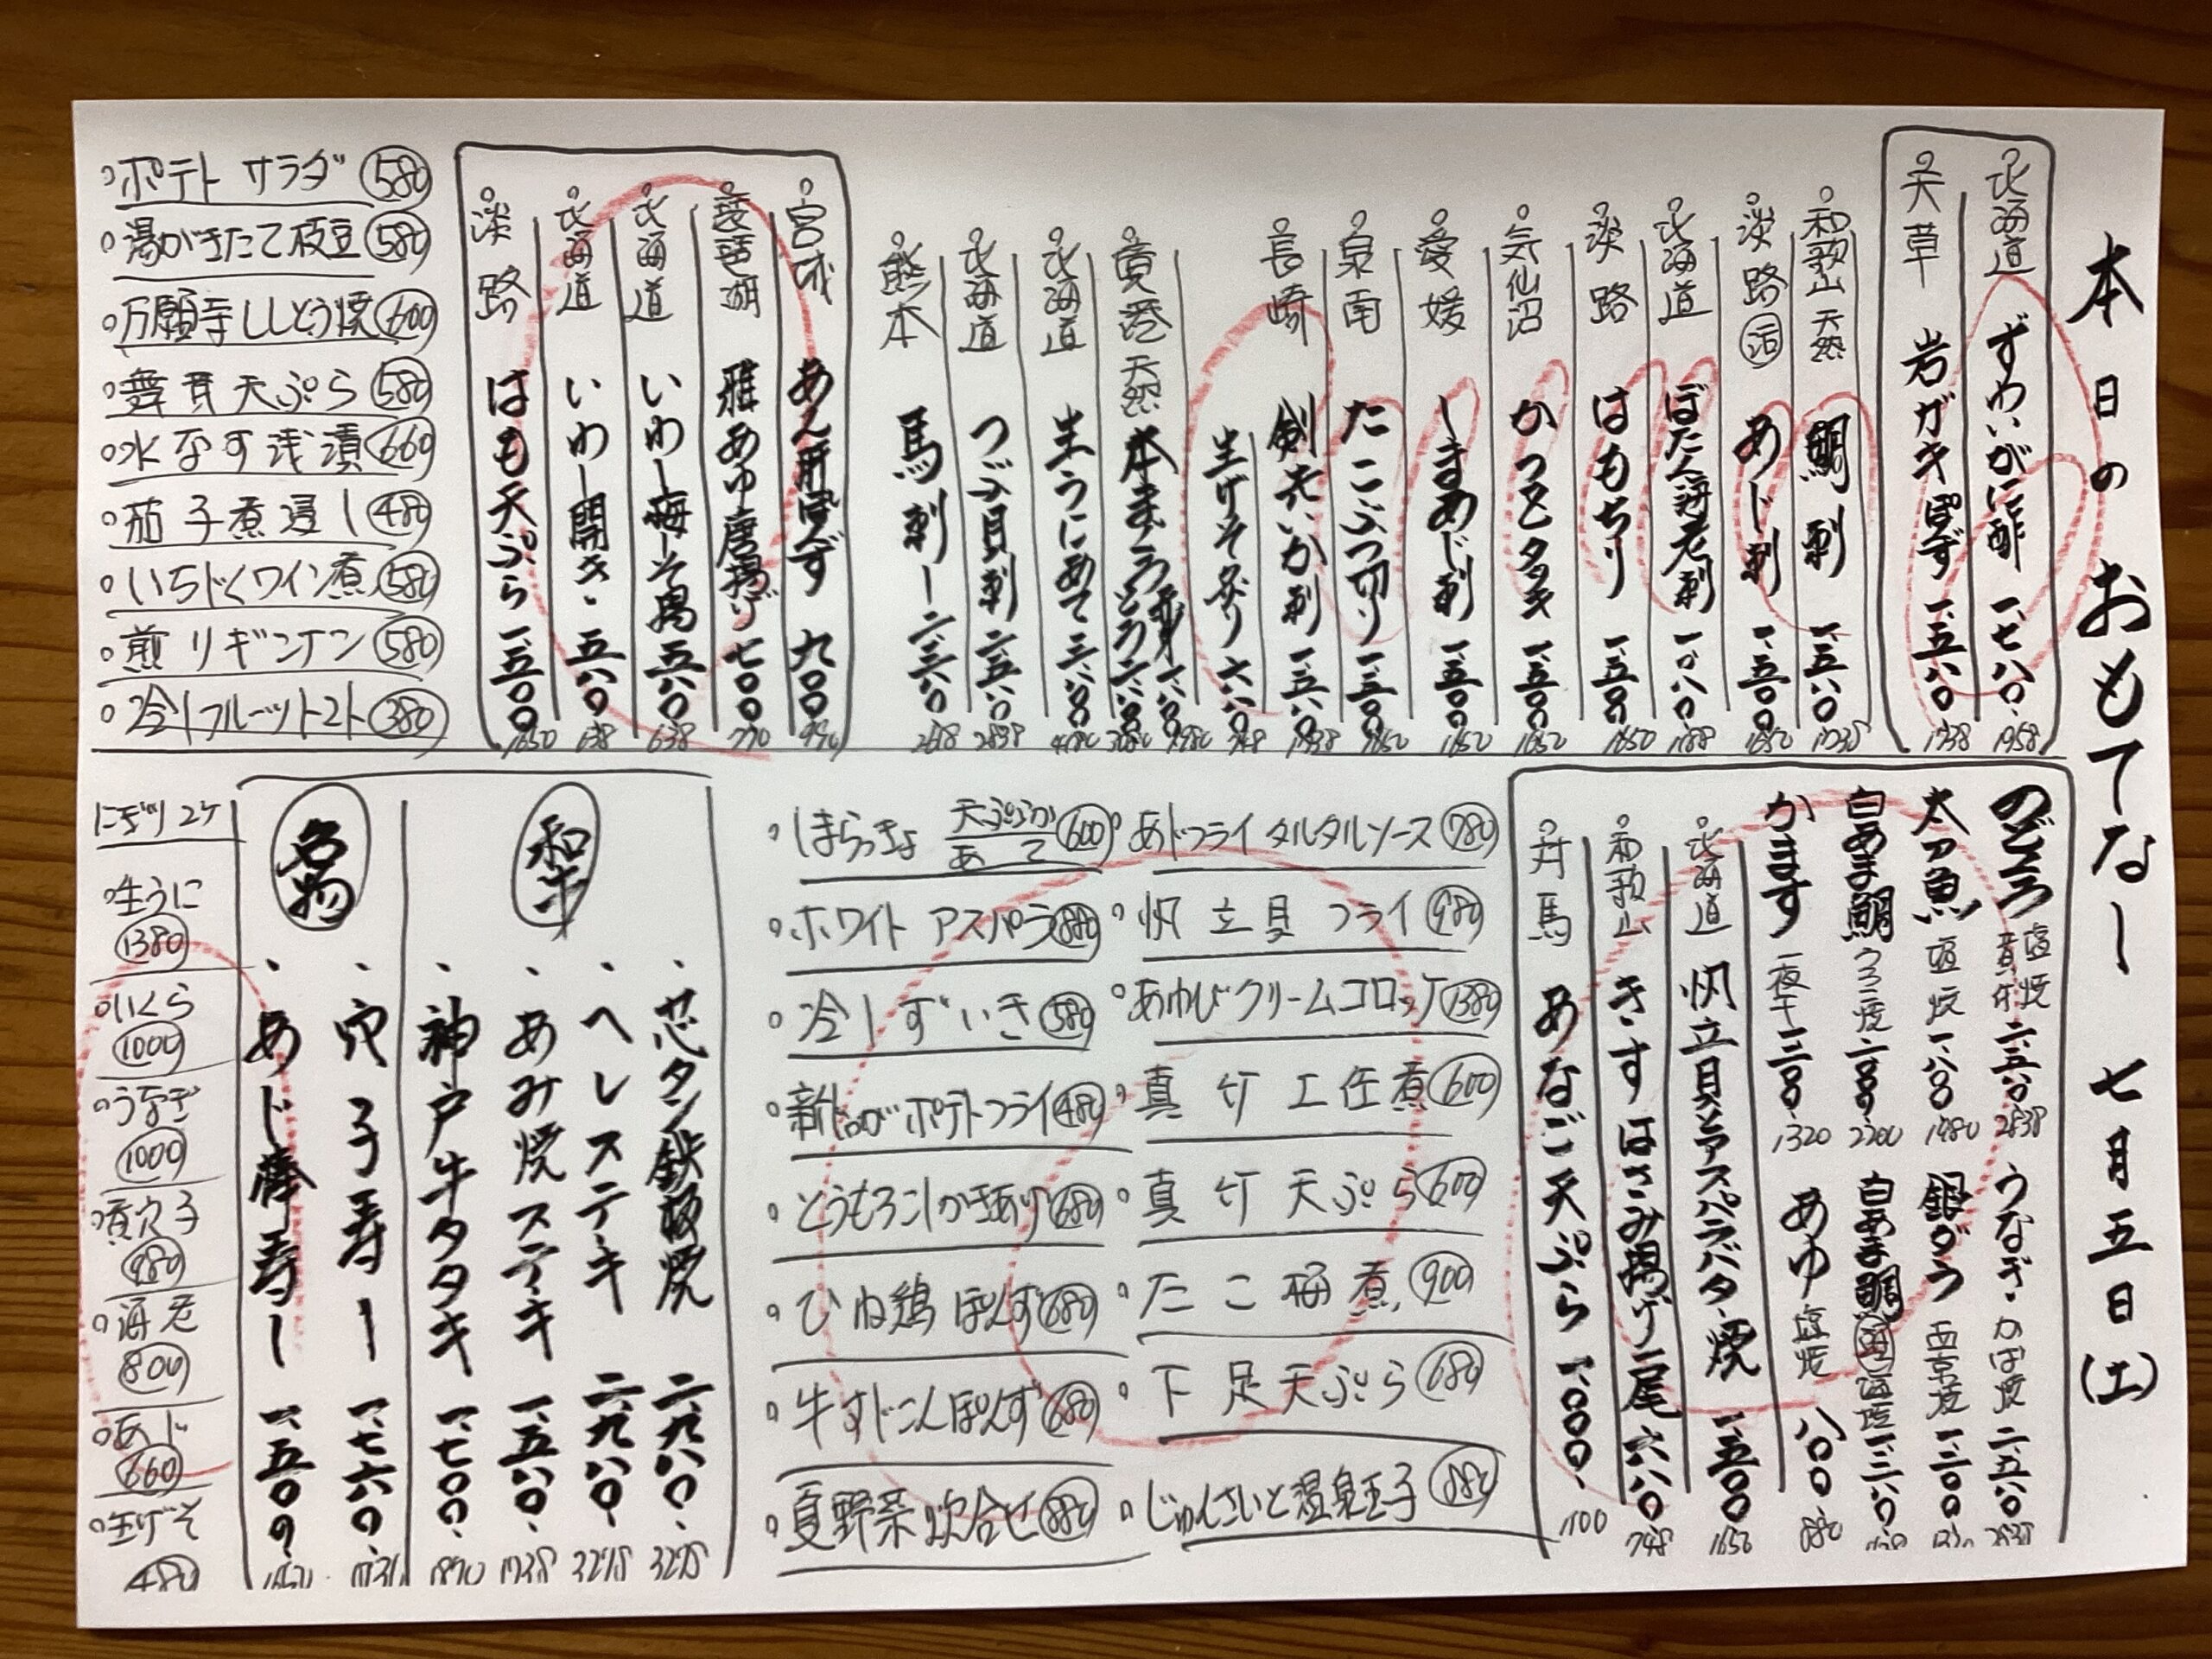 本日のおもてなし 七月五日(土)
北海道 ずわいがに酢 一、七八〇 1958
天草 岩ガキぽんず 一、五八〇 1738
和歌山 天然 鯛刺 一、五八〇 1738
淡路 活 あじ刺 一、五〇〇 1650
北海道 ぼたん海老刺 一、〇八〇 1188
淡路 はもちり 一、五〇〇 1650
気仙沼 かつおタタキ 一、五〇〇 1650
愛媛 しまあじ刺 一、五〇〇 1650
泉南 たこぶつ切り 一、五〇〇 1650
長崎 剣先いか刺 一、五八〇 1738
生げそ炙り 六八〇 748
天然 本まぐろ
北海道 生うにあて
北海道 つぶ貝刺 二、五八〇 2838
熊本 馬刺し
宮城 あん肝ぽんず 九〇〇 990
琵琶湖 稚あゆ唐揚げ 七〇〇 770
北海道 いわし梅しそ揚 五八〇 638
北海道 いわし開き 五八〇 638
淡路 はも天ぷら 一、五〇〇 1650
ポテトサラダ 580
湯がきたて枝豆 580
万願寺ししとう焼 600
舞茸天ぷら 580
水なす浅漬 660
茄子煮浸し 480
いちじくワイン煮 580
煎りギンナン 580
冷しフルーツトマト 380
のどぐろ 塩焼 煮付 二、五八〇 2838
太刀魚 塩焼 一、八〇〇 1980
白あま鯛 うろこ焼 二、〇〇〇 2200
かます 一夜干 一、二〇〇 1320
うなぎ かば焼 二、五八〇 2838
銀だら 西京焼 一、二〇〇 1320
白あま鯛
あゆ 塩焼 八〇〇 880
北海道 帆立貝とアスパラバター焼 一、五〇〇 1650
和歌山 きすはさみ揚げ 二尾 六八〇 748
対馬 あなご天ぷら 一、〇〇〇 1100
あじフライタルタルソース 780
帆立貝フライ 980
あわびクリームコロッケ 1380
真竹土佐煮 600
真竹天ぷら 600
たこ梅煮 900
下足天ぷら 680
じゅんさいと温泉玉子 880
しまらっきょ 天ぷらか あて 600
ホワイトアスパラ 880
冷しずいき 580
新じゃがポテトフライ 480
とうもろこしかきあげ 680
ひね鶏ぽんず 680
牛すじこんぽんず 680
夏野菜炊合せ 880
和牛
芯タン鉄板焼 二、九八〇 3278
ヘレステーキ 二、九八〇 3278
あみ焼ステーキ 一、五八〇 1738
神戸牛タタキ 一、七〇〇 1870
名物
穴子寿し
あじ棒寿し 一、五〇〇 1650
にぎり2ケ
生うに 1380
いくら 1000
うなぎ 1000
煮穴子 980
海老 800
あじ 660
生げそ 480